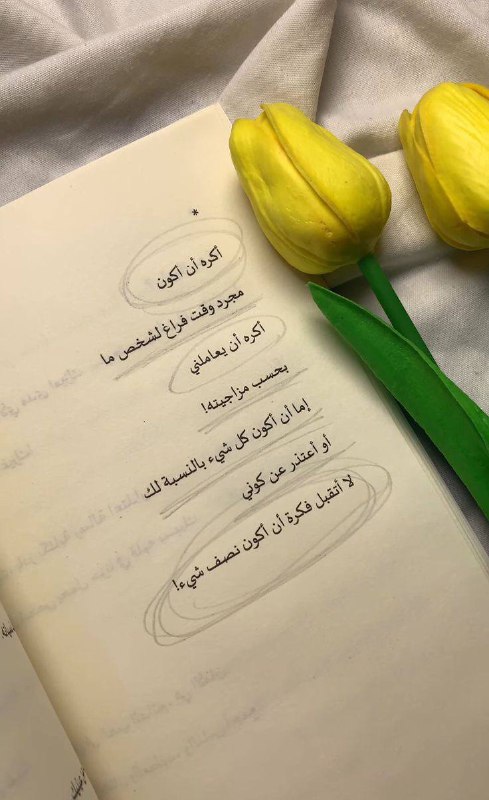 *
أكره أن أكون
مجرد وقت فراغ لشخص ما
أكره أن يعاملني
بحسب مزاجيته!
إما أن أكون كل شيء بالنسبة لك
أو أعتذر عن كوني
لا أتقبل فكرة أن أكون نصف شيء!